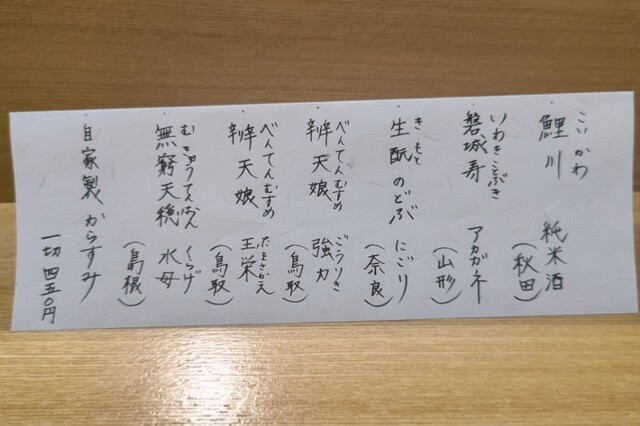 こいかわ
鯉川 純米酒
(秋田)
いわきことぶき
磐城寿 アカガネ
(山形)
きもと
生酛のどぶ にごり
(奈良)
べんてんむすめ ごうりき
辨天娘 強力
(鳥取)
べんてんむすめ たまさかえ
辨天娘 玉栄
(鳥取)
むきゅうてんおん くらげ
無窮天穏 水母
(島根)
自家製からすみ
一切 四五〇円